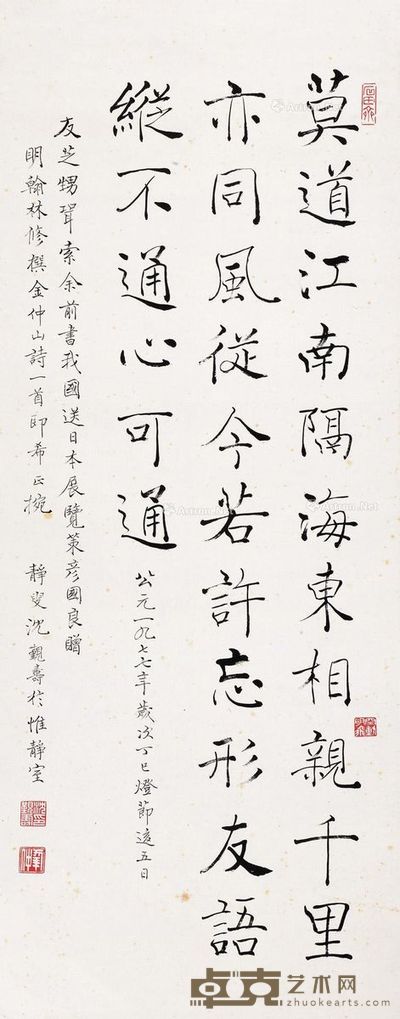 莫道江南隔海東相親千里
亦同風從今若許忘形友語
縱不通心可通
公元一九七七年歲次丁巳燈節後五日
友芝甥聟索余前書我國送日本展覽策彥國良贈
明翰林修撰金仲山詩一首即希正捥
靜叟沈覲壽於惟靜室
卓克艺术网
www.zhuokearts.com